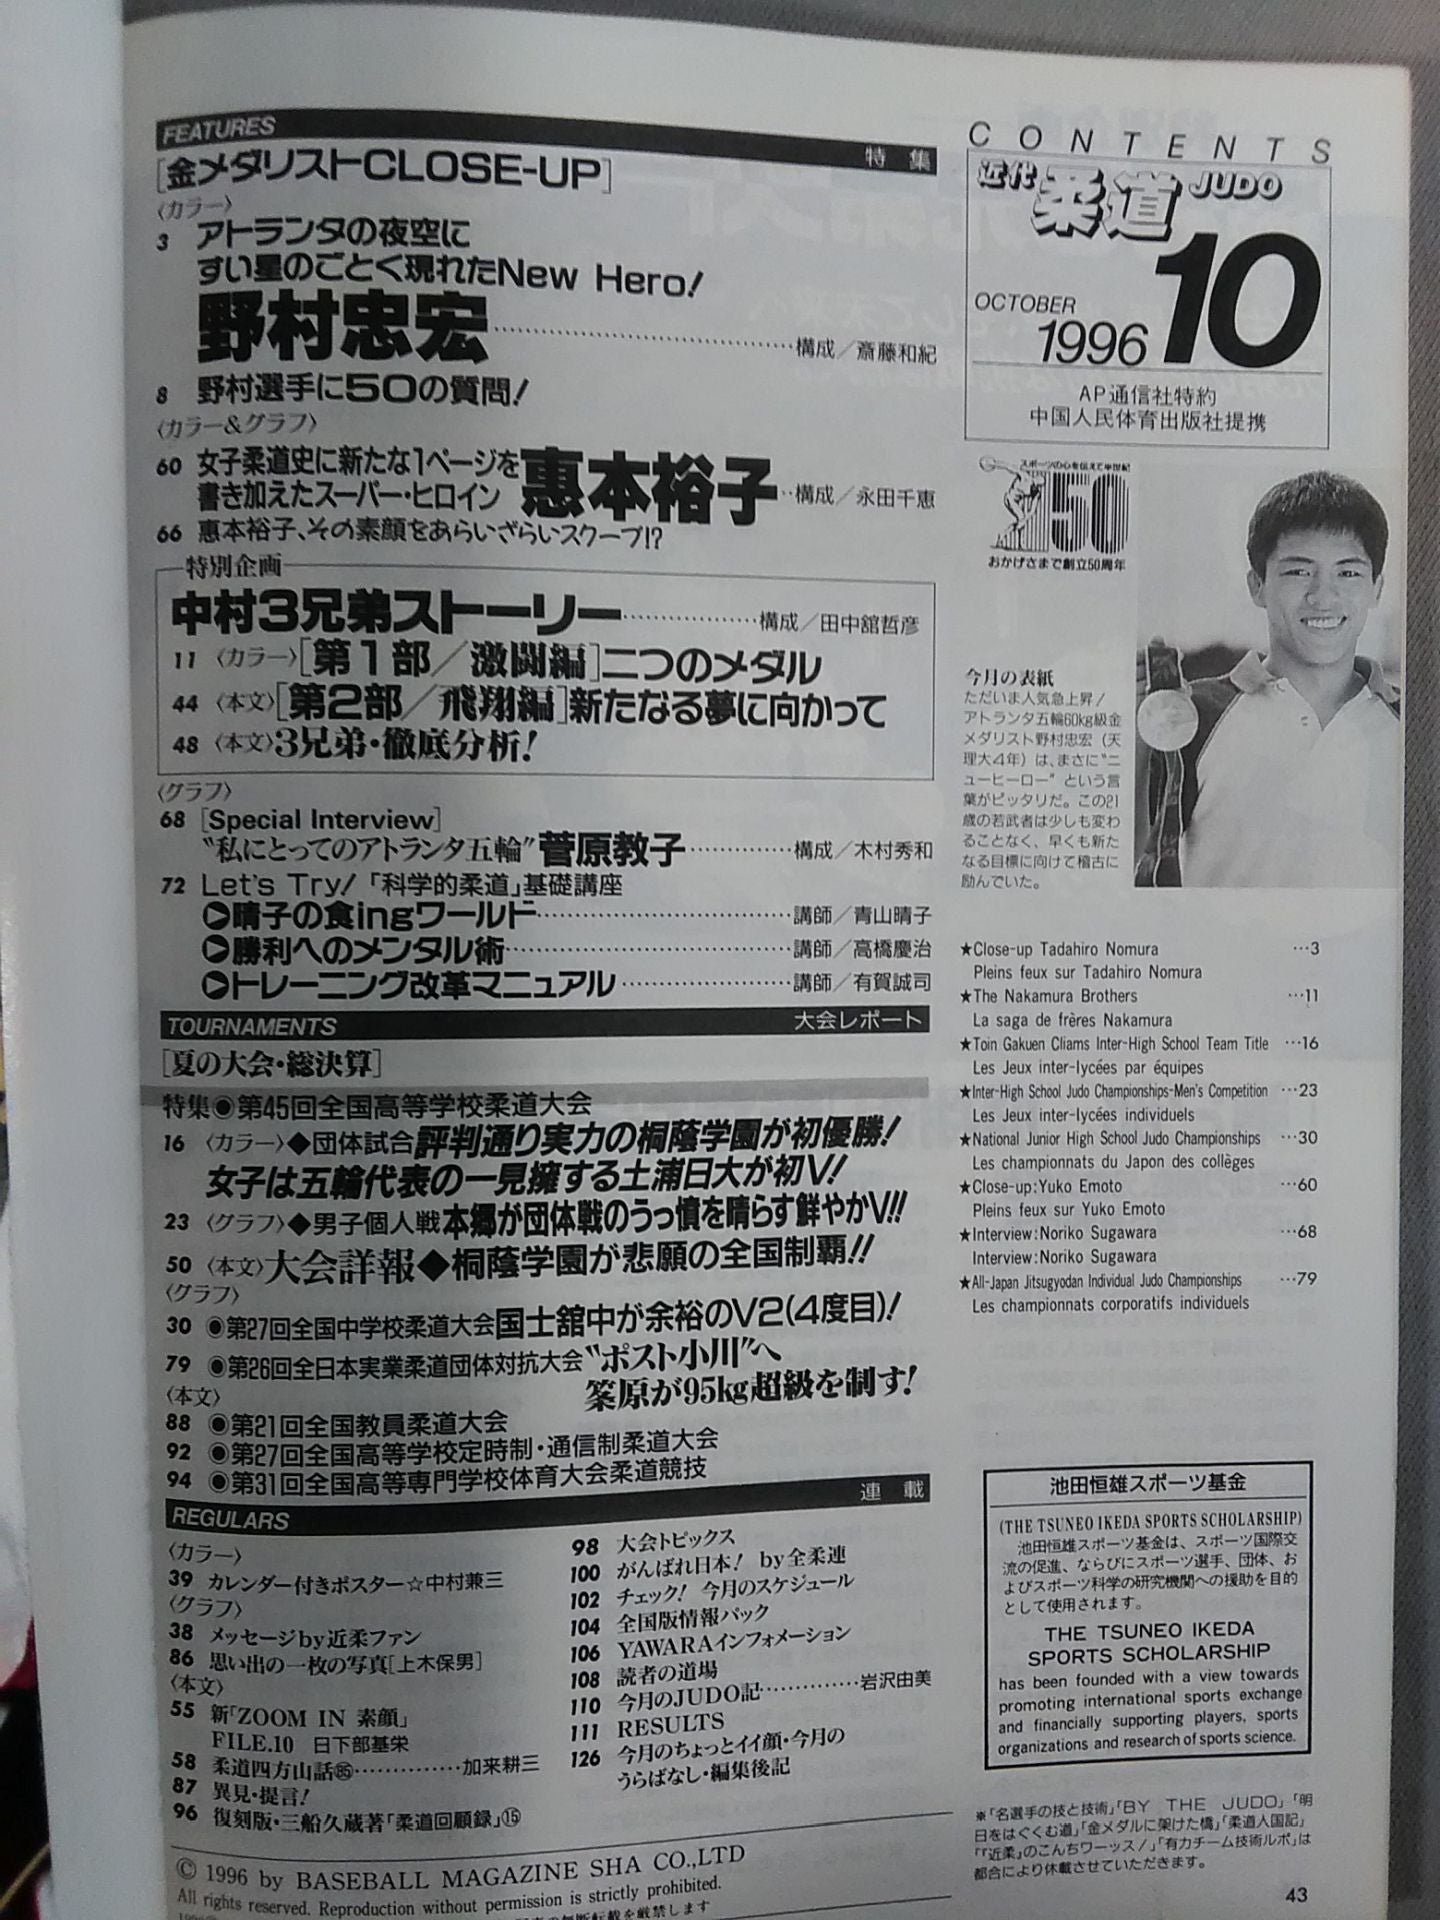 FEATURES 特集
[金メダリストCLOSE-UP]
〈カラー〉
3 アトランタの夜空に
すい星のごとく現れたNew Hero!
野村忠宏……構成／斎藤和紀
8 野村選手に50の質問!
〈カラー&グラフ〉
60 女子柔道史に新たな1ページを
書き加えたスーパー・ヒロイン 惠本裕子‥構成／永田千恵
66 惠本裕子、その素顔をあらいざらいスクープ!?
特別企画
中村3兄弟ストーリー……構成／田中舘哲彦
11 〈カラー〉[第1部／激闘編]二つのメダル
44 〈本文〉[第2部／飛翔編]新たなる夢に向かって
48 〈本文〉3兄弟・徹底分析!
〈グラフ〉
68 [Special Interview]
“私にとってのアトランタ五輪”菅原教子……構成／木村秀和
72 Let's Try!「科学的柔道」基礎講座
▶晴子の食ingワールド……講師／青山晴子
▶勝利へのメンタル術……講師／高橋慶治
▶トレーニング改革マニュアル……講師／有賀誠司
TOURNAMENTS 大会レポート
[夏の大会・総決算]
特集◉第45回全国高等学校柔道大会
16 〈カラー〉◆団体試合評判通り実力の桐蔭学園が初優勝!
女子は五輪代表の一見擁する土浦日大が初V!
23 〈グラフ〉◆男子個人戦本郷が団体戦のうっ憤を晴らす鮮やかV!!
50 〈本文〉大会詳報◆桐蔭学園が悲願の全国制覇!!
〈グラフ〉
30 ◉第27回全国中学校柔道大会国士舘中が余裕のV2(4度目)!
79 ◉第26回全日本実業柔道団体対抗大会“ポスト小川”へ
〈本文〉 筌原が95kg超級を制す!
88 ◉第21回全国教員柔道大会
92 ◉第27回全国高等学校定時制・通信制柔道大会
94 ◉第31回全国高等専門学校体育大会柔道競技
REGULARS 連載
〈カラー〉
39 カレンダー付きポスター☆中村兼三
〈グラフ〉
38 メッセージby近柔ファン
86 思い出の一枚の写真[上木保男]
〈本文〉
55 新「ZOOM IN 素顔」
FILE.10 日下部基栄
58 柔道四方山話……加来耕三
87 異見・提言!
96 復刻版・三船久蔵著「柔道回顧録」⑮
98 大会トピックス
100 がんばれ日本! by全柔連
102 チェック! 今月のスケジュール
104 全国版情報パック
106 YAWARAインフォメーション
108 読者の道場
110 今月のJUDO記……岩沢由美
111 RESULTS
126 今月のちょっとイイ顔・今月の
うらばなし・編集後記
© 1996 by BASEBALL MAGAZINE SHA CO.,LTD
All rights reserved. Reproduction without permission is strictly prohibited.
CONTENTS
近代柔道JUDO
OCTOBER
1996 10
AP通信社特約
中国人民体育出版社提携
スポーツの心を伝えて半世紀
50
おかげさまで創立50周年
今月の表紙
ただいま人気急上昇!
アトランタ五輪60kg級金
メダリスト野村忠宏（天
理大4年）は、まさに“ニ
ューヒーロー”という言
葉がピッタリだ。この21
歳の若武者は少しも変わ
ることなく、早くも新た
なる目標に向けて稽古に
励んでいた。
★Close-up Tadahiro Nomura …3
Pleins feux sur Tadahiro Nomura
★The Nakamura Brothers …11
La saga de frères Nakamura
★Toin Gakuen Cliams Inter-High School Team Title …16
Les Jeux inter-lycées par équipes
★Inter-High School Judo Championships-Men's Competition …23
Les Jeux inter-lycées individuels
★National Junior High School Judo Championships …30
Les championnats du Japon des collèges
★Close-up:Yuko Emoto …60
Pleins feux sur Yuko Emoto
★Interview:Noriko Sugawara …68
Interview:Noriko Sugawara
★All-Japan Jitsugyodan Individual Judo Championships …79
Les championnats corporatifs individuels
池田恒雄スポーツ基金
(THE TSUNEO IKEDA SPORTS SCHOLARSHIP)
池田恒雄スポーツ基金は、スポーツ国際交
流の促進、ならびにスポーツ選手、団体、お
よびスポーツ科学の研究機関への援助を目的
として使用されます。
THE TSUNEO IKEDA
SPORTS SCHOLARSHIP
has been founded with a view towards
promoting international sports exchange
and financially supporting players, sports
organizations and research of sports science.
※「名選手の技と技術」「BY THE JUDO」「明
日をはぐくむ道」「金メダルに架けた橋」「柔道人国記」
「『近柔』のこんちワーッス!」「有力チーム技術ルポ」は
都合により休載させていただきます。
43